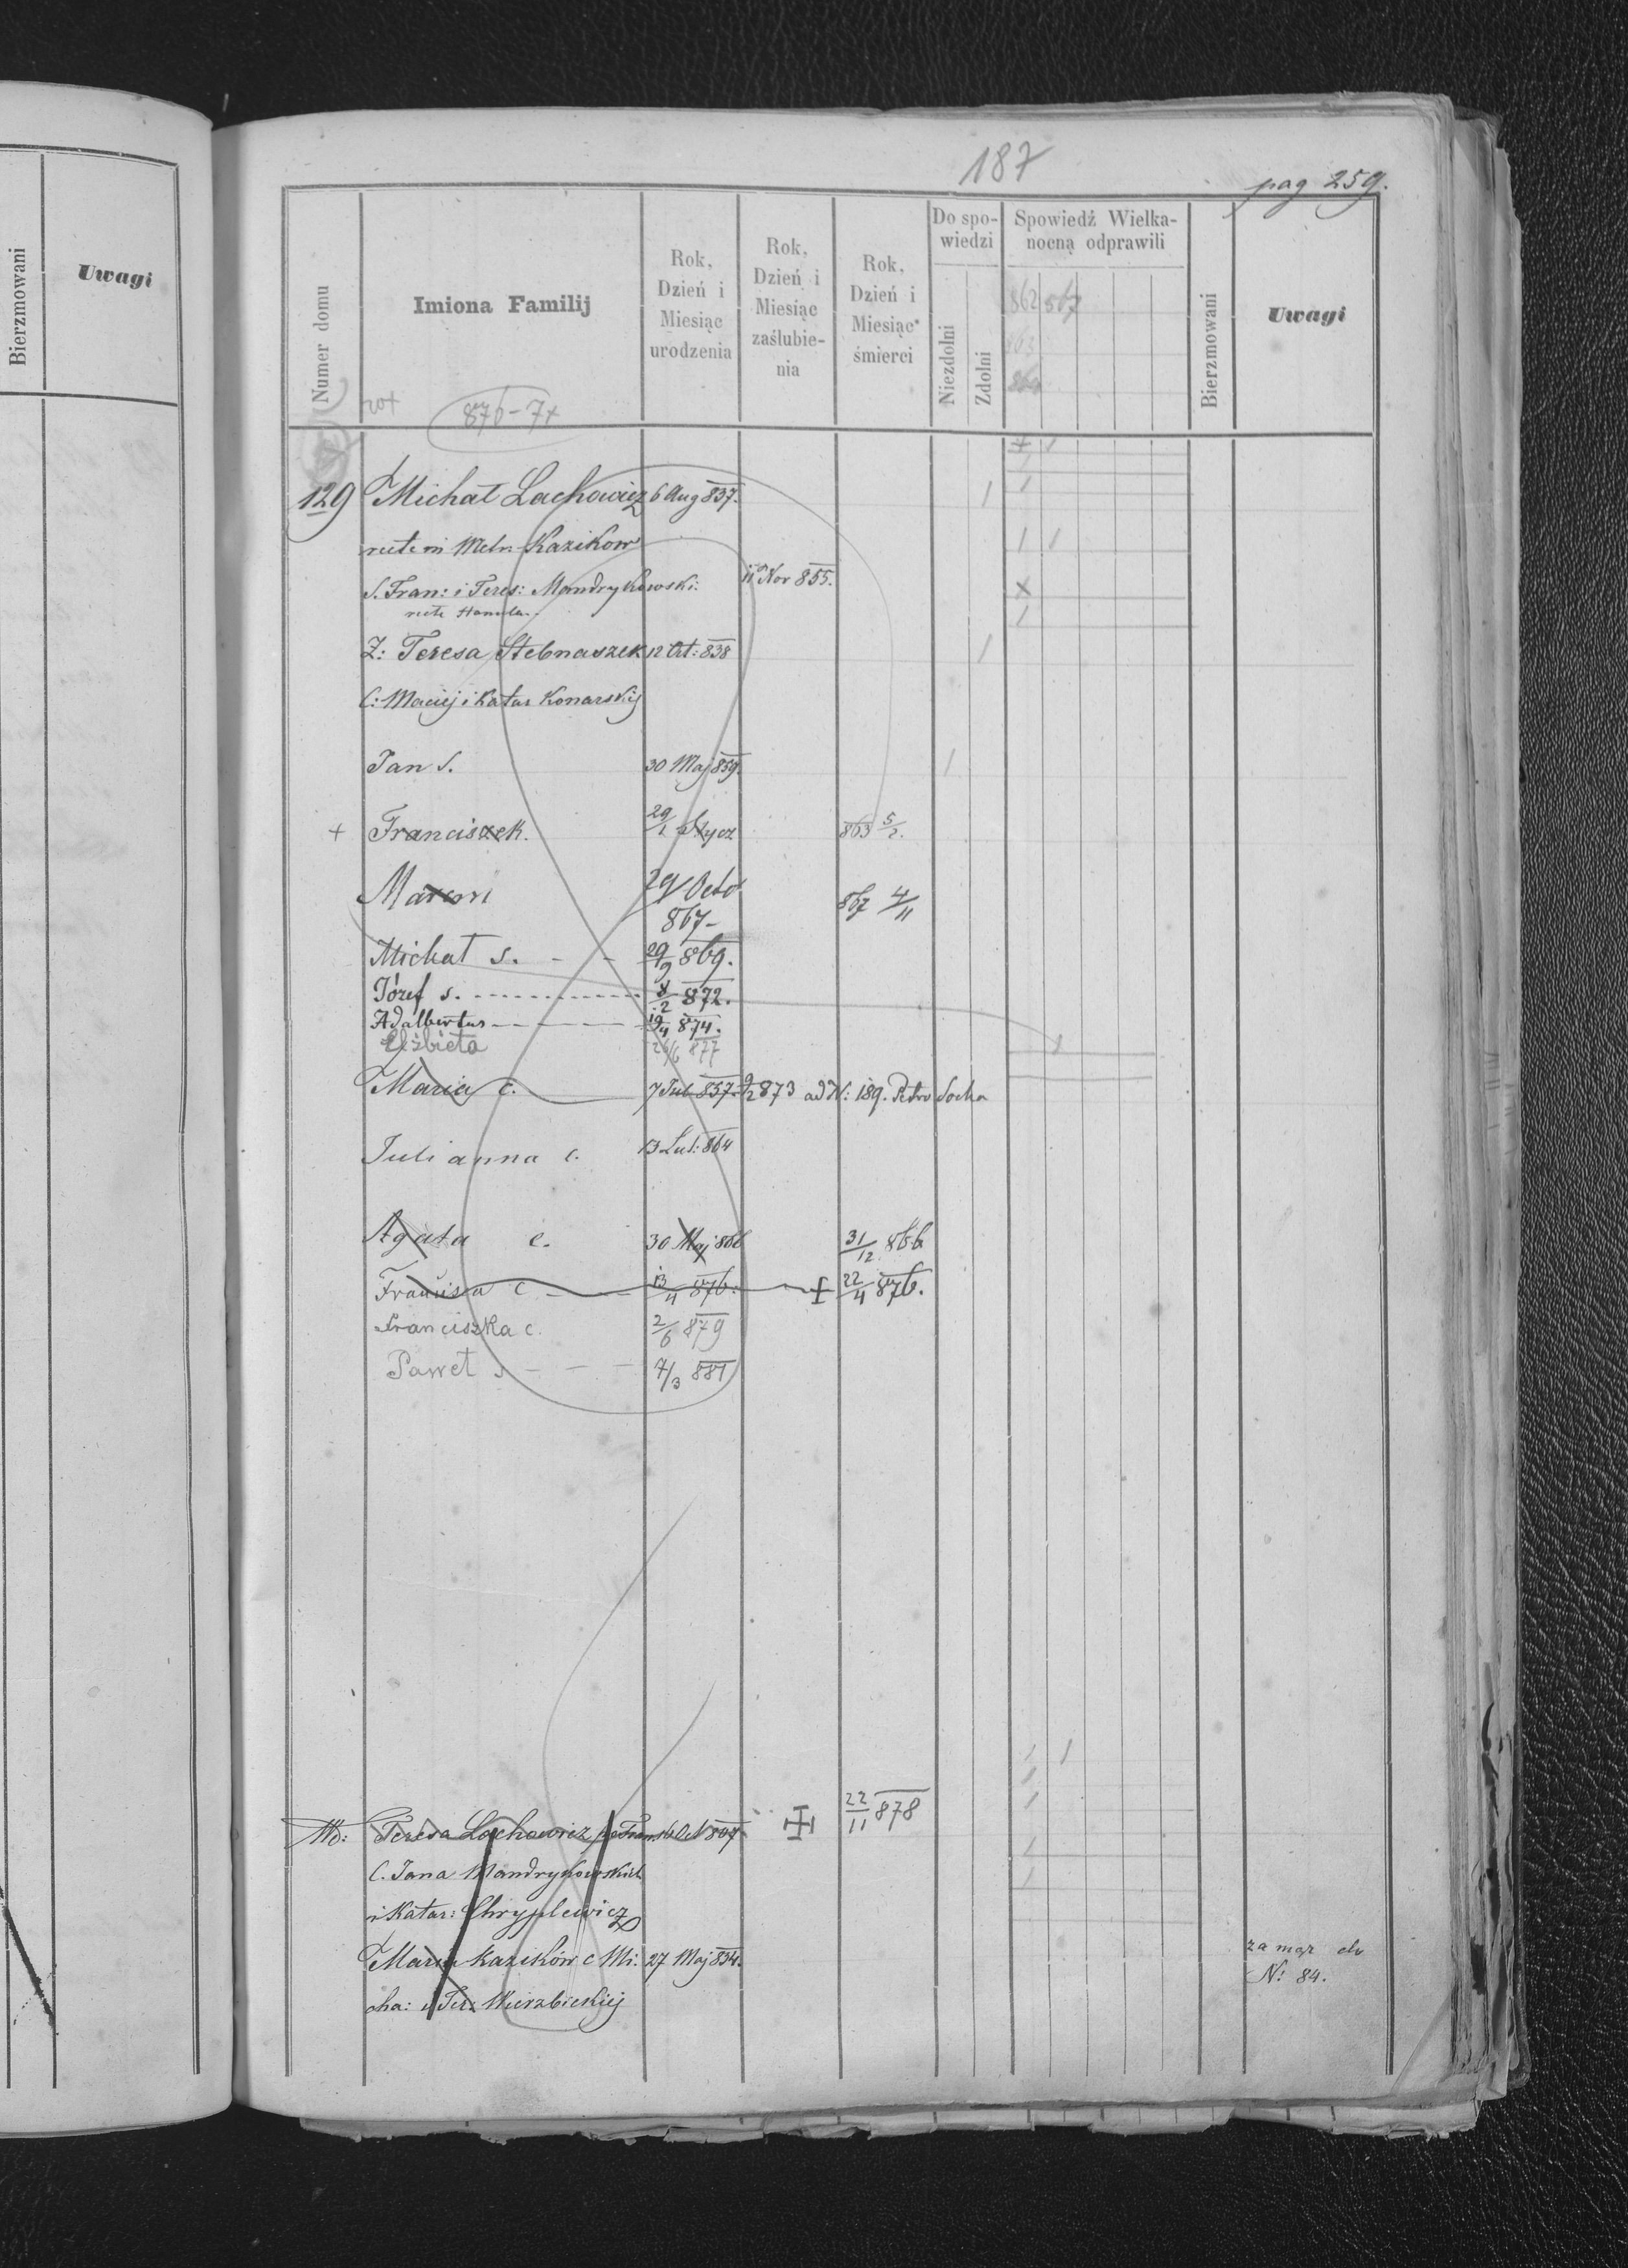 187
pag 259.
Bierzmowani
Uwagi
Numer domu
Imiona Familij
Rok, Dzień i Miesiąc urodzenia
Rok, Dzień i Miesiąc zaślubienia
Rok, Dzień i Miesiąc śmierci
Do spowiedzi
Niezdolni
Zdolni
Spowiedź Wielkanocną odprawili
862 867
863
864
Bierzmowani
Uwagi
876-7+
129 Michał Lachowicz 6 Aug 837.
Kazikow
S. Fran: i Teres: Mandrykowski: Nov 855.
Z: Teresa Stebnaszek 12 Oct: 838
C: Maciej i Katar Konarskij
Jan S. 30 Maj 859.
+ Franciszek. 29/1 Stycz 863 5/2.
Marcin 29 Octo 867- 867 4/11
Michał s. - - 29/9 869.
Józef s. 872.
Adalbertus 19/4 874.
Elżbieta 26/6 877
Maria c. 7 857. 9/2 873 ad N: 189. Petro Socha
Julianna c. 13 Lut: 864
Agata c. 30 Maj 866 31/12 866
c 13/4 876. + 22/4 876.
Franciszka c. 2/6 879
Paweł s - - - 7/3 881
Teresa Lachowicz po Fran 22/11 878
C. Jana Mandrykowskich
i Katar: Chryplewicz
Maria Kazików C Mi: 27 Maj 854.
cha: i Ter: Wierzbickiej
za mąż do
N: 84.